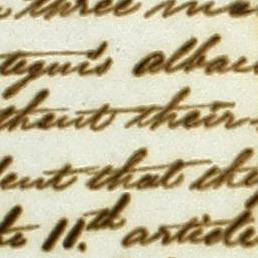 three
teguis alban
thout their
ent that the
11.th article